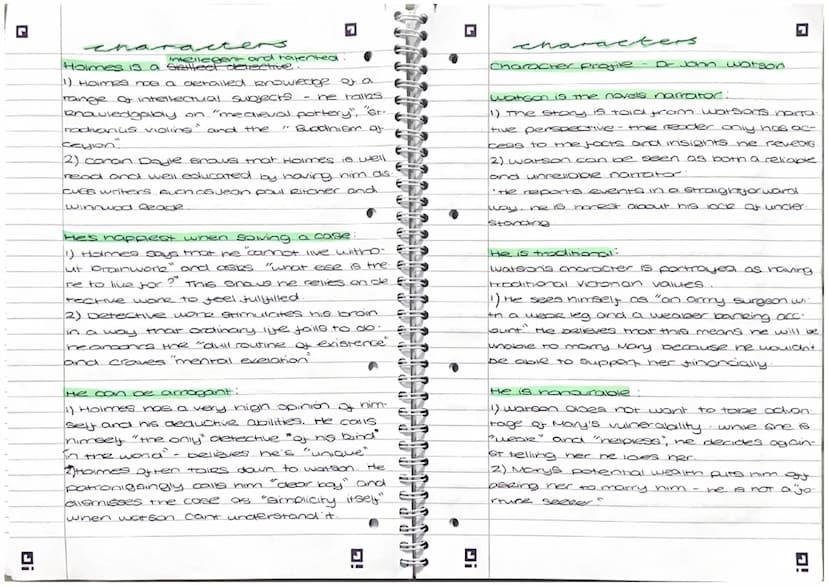 characters
Holmes is a skilled detective. intellegent and talented:
1) Holmes has a detailed knowledge of a
range of intellectual subjects - he talks
knowledgably on "medieval pottery", "st-
radivarius violins" and the " Buddhism of
Ceylon".
2) Conan Doyle shows that Holmes is well
read and well educated by having him
writers such as Jean Paul Richter and
Winwood Reade.
He's happiest when solving a case:
1) Holmes says that he "cannot live witho-
ut brainwork" and asks "what else is the-
re to live for?" This shows he relies on de-
tective work to feel fulfilled.
2) Detective work stimulates his brain
in a way that ordinary life fails to do -
he abhors the "dull routine of existence"
and craves "mental exelation"
He can be arrogant:
1) Holmes has a very high opinion of him-
self and his deductive abilities. He calls
himself "the only" detective "of his kind"
in the world" - believes he's "unique"
2) Holmes often talks down to Watson. He
patronisingly calls him "dear boy" and
dismisses the case as "simplicity itself"
when Watson can't understand it.
characters
Character profile - Dr John Watson
Watson is the novels narrator:
1) The story is told from Watsons narra-
tive perspective - the reader only has ac-
cess to the facts and insights he reveals
2) Watson can be seen as both a reliable
and unreliable narrator:
· He reports events in a straightforward
way, he is honest about his lack of under-
standing
He is traditional:
Watson's character is portrayed as having
traditional Victorian values.
1) He sees himself as "an army surgeon wi-
th a weak leg and a weaker banking acc-
ount" He believes that this means he will be
unable to marry Mary because he wouldn't
be able to support her financially.
He is honourable:
1) Watson does not want to take advan-
tage of Mary's vulnerability. while she is
"weak" and "helpless", he decides again-
st telling her he loves her.
2) Mary's potential wealth puts him off
asking her to marry him - he is not a "fo-
rtune seeker"